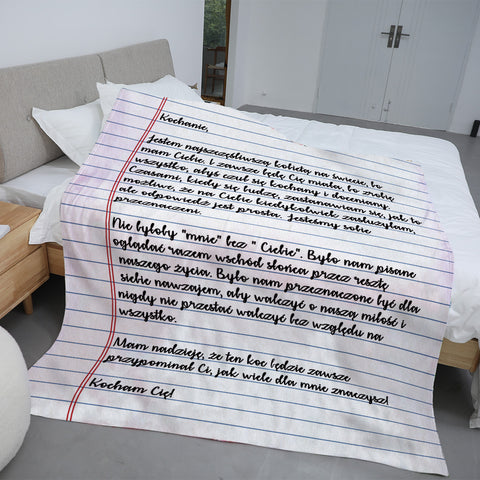 Kochanie,
Jestem najszczęśliwszą kobietą na świecie, bo
mam Ciebie. I zawsze będę Cię miała, bo zrobię
wszystko, abyś czuł się kochany i doceniany.
Czasami, kiedy się budzę, zastanawiam się, jak to
możliwe, że na Ciebie kiedykolwiek zasłużyłam,
ale odpowiedź jest prosta. Jesteśmy sobie
przeznaczeni.
Nie byłoby "mnie" bez " Ciebie". Było nam pisane
oglądać razem wschód słońca przez resztę
naszego życia. Było nam przeznaczone być dla
siebie nawzajem, aby walczyć o naszą miłość i
nigdy nie przestać walczyć bez względu na
wszystko.
Mam nadzieję, że ten koc będzie zawsze
przypominał Ci, jak wiele dla mnie znaczysz!
Kocham Cię!